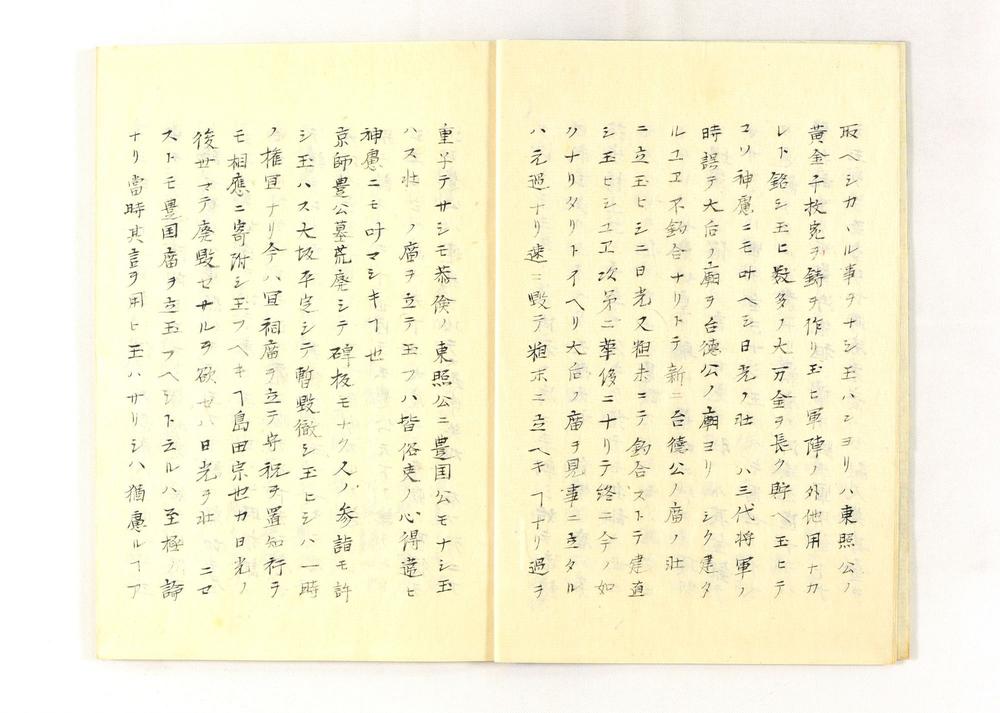 取ヘシカヽル事ヲナシ玉ハンヨリハ東照公ノ
黄金千枚宛ヲ鋳ヲ作リ玉ヒ軍陣ノ外他用ナカ
レト銘シ玉ヒ数多ノ大万金ヲ長ク貯ヘ玉ヒテ
コソ神慮ニモ叶ヘシ日光ノ壮 ハ三代将軍ノ
時誤テ大后ノ廟ヲ台徳公ノ廟ヨリ シク建タ
ルユヱ不釣合ナリトテ新ニ台徳公ノ廟ノ壮
ニ立玉ヒシニ日光又粗末ニテ釣合ストテ建直
シ玉ヒシユヱ次第ニ華侈ニナリテ終ニ今ノ如
クナリタリトイヘリ大后ノ廟ヲ見事ニ立タル
ハ元過ナリ速ニ毀テ粗末ニ立ヘキヿナリ過ヲ
重子テサシモ恭倹ノ東照公ニ豊国公モナシ玉
ハス壮 ノ廟ヲ立テ玉フハ皆俗吏ノ心得違ヒ
神慮ニモ叶マシキヿ也
京師豊公墓荒廃シテ碑板モナク人ノ参詣モ許
シ玉ハス大坂平定シテ暫毀徹シ玉ヒシハ一時
ノ権宜ナリ今ハ宜祠廟ヲ立テ守祝ヲ置知行テ
モ相應ニ寄附シ玉フヘキヿ島田宗也カ日光ノ
後世マテ廃毀セサルヲ欲セハ日光ヲ壮 ニセ
ストモ豊国廟ヲ立玉フヘシト云ルハ至極ノ論
ナリ當時其言ヲ用ヒ玉ハサリシハ猶慮ルヿア